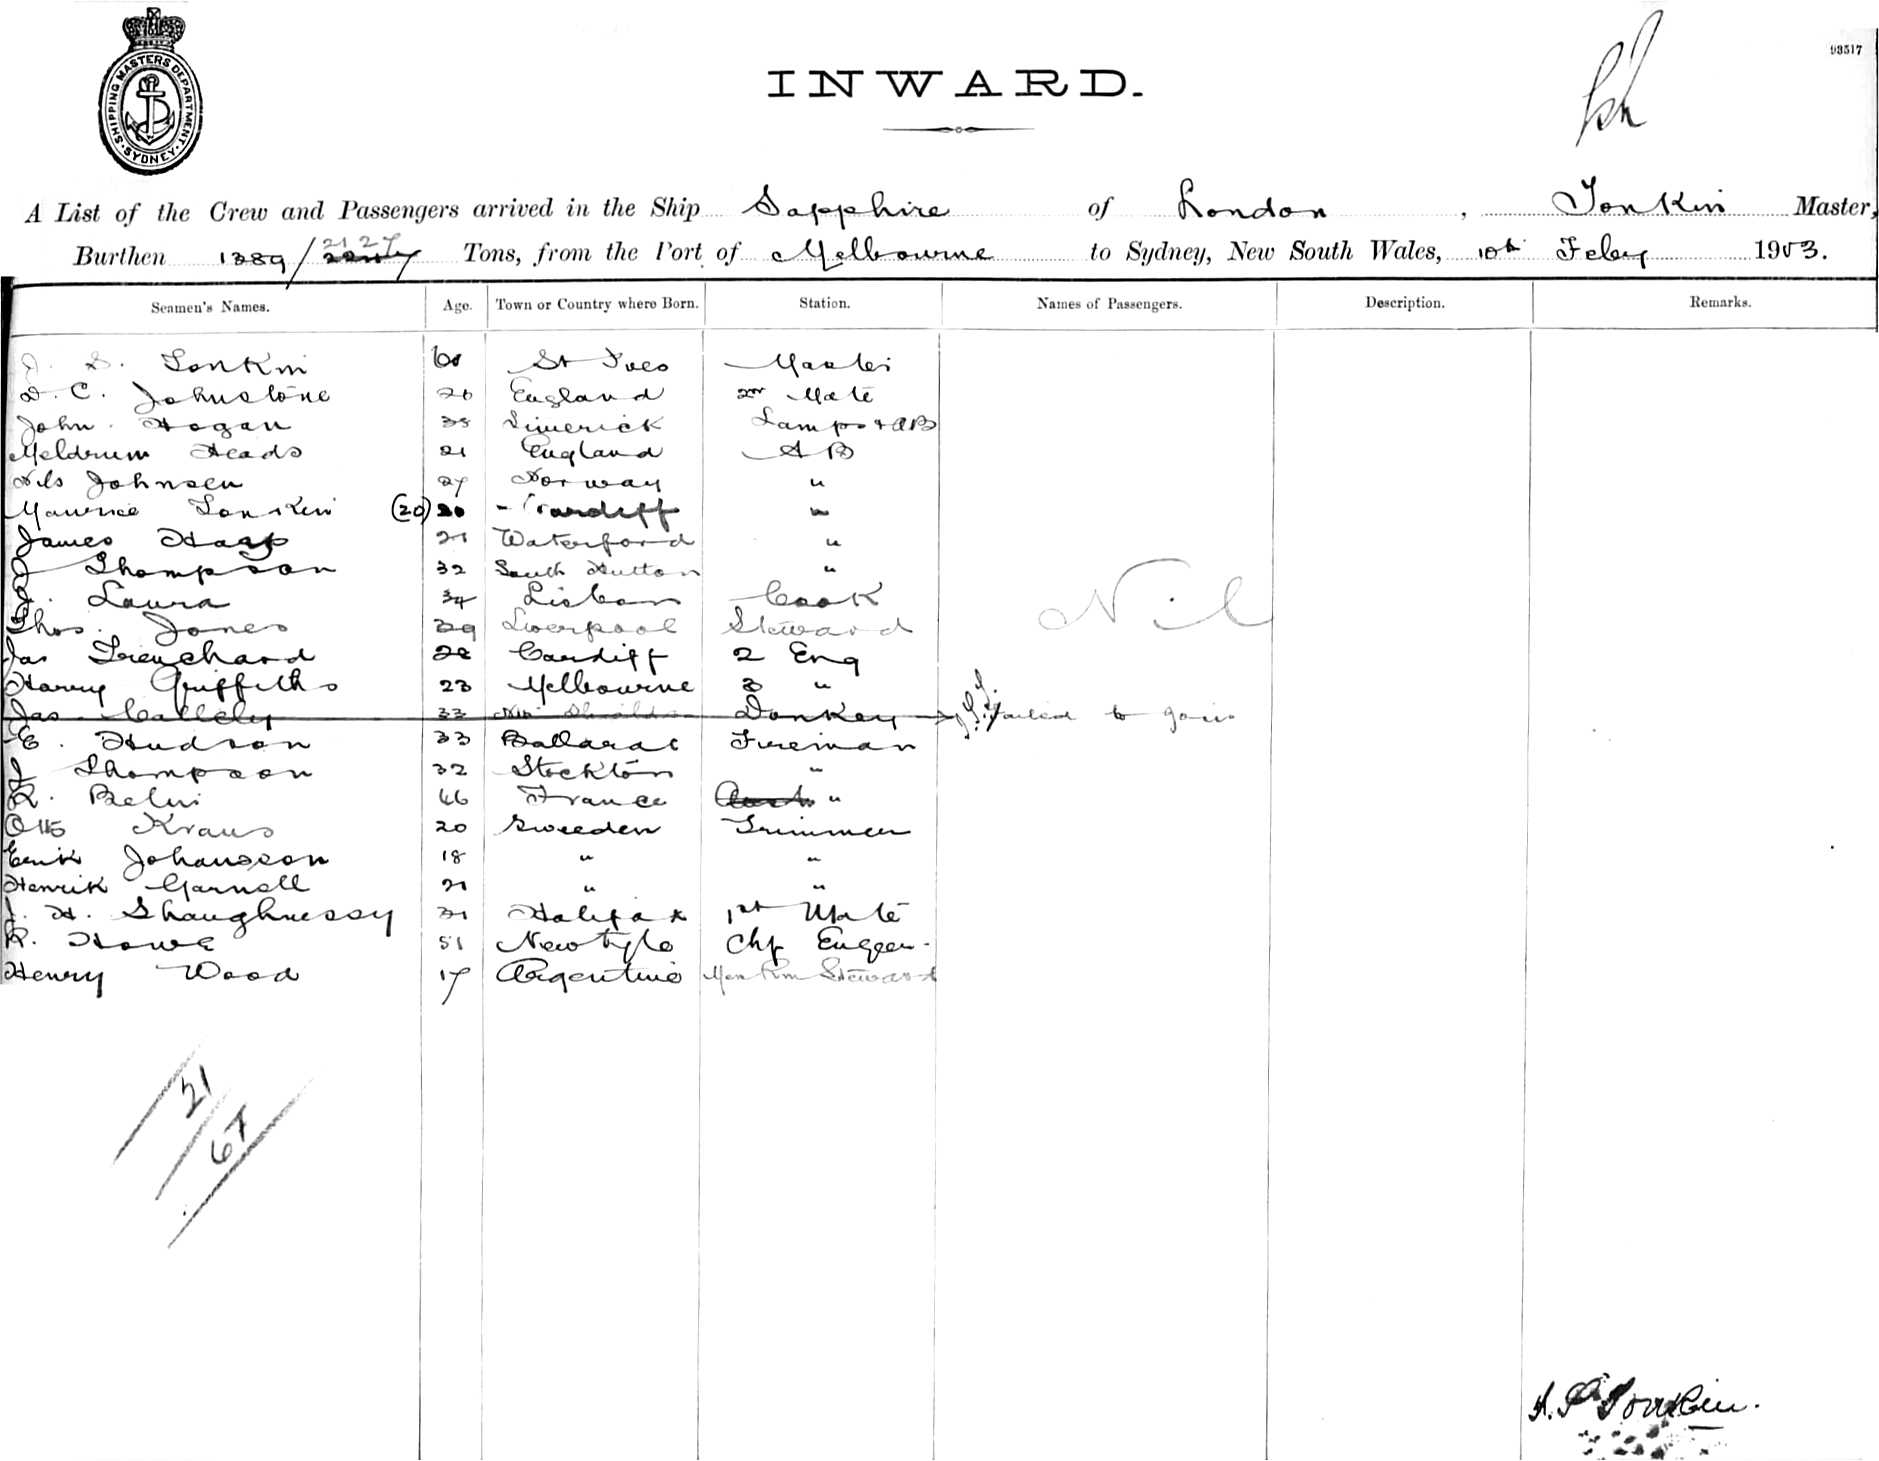 SHIPPING MASTERS DEPARTMENT
SYDNEY
93517
INWARD.
A List of the Crew and Passengers arrived in the Ship Sapphire of London, Tonkin Master,
Burthen 1389 / 2127 Tons, from the Port of Melbourne to Sydney, New South Wales, 10th Feby 1903.
Seamen's Names. Age. Town or Country where Born. Station. Names of Passengers. Description. Remarks.
J. S. Tonkin St Ives Master
D. C. Johnstone England 2nd Mate
John Hogan 38 Limerick Lamps + AB
Meldrum Heads 21 England AB
Nils Johnsen 27 Norway "
Maurice Tonkin (20) 20 - Cardiff "
James 21 Waterford "
J Thompson 32 South Hutton "
J. Laura 34 Lisbon Cook
Nil
Thos. Jones 39 Liverpool Steward
Jas Trenchard 28 Cardiff 2 Eng
Harry Griffiths 23 Melbourne 3 "
Jas 33 Nth Shields Donkey Failed to join
E. Hudson 33 Ballarat Fireman
J Thompson 32 Stockton "
R. 46 France "
Otto Kraus 20 Sweeden Trimmer
Erik Johansson 18 " "
Henrik Garnell 21 " "
J. H. Shaughnessy 31 Halifax 1st Mate
R. Howe 51 Newtyle Chf Engeer.
Henry Wood 17 Argentine Mess Rm Steward
21
67
Tonkin.